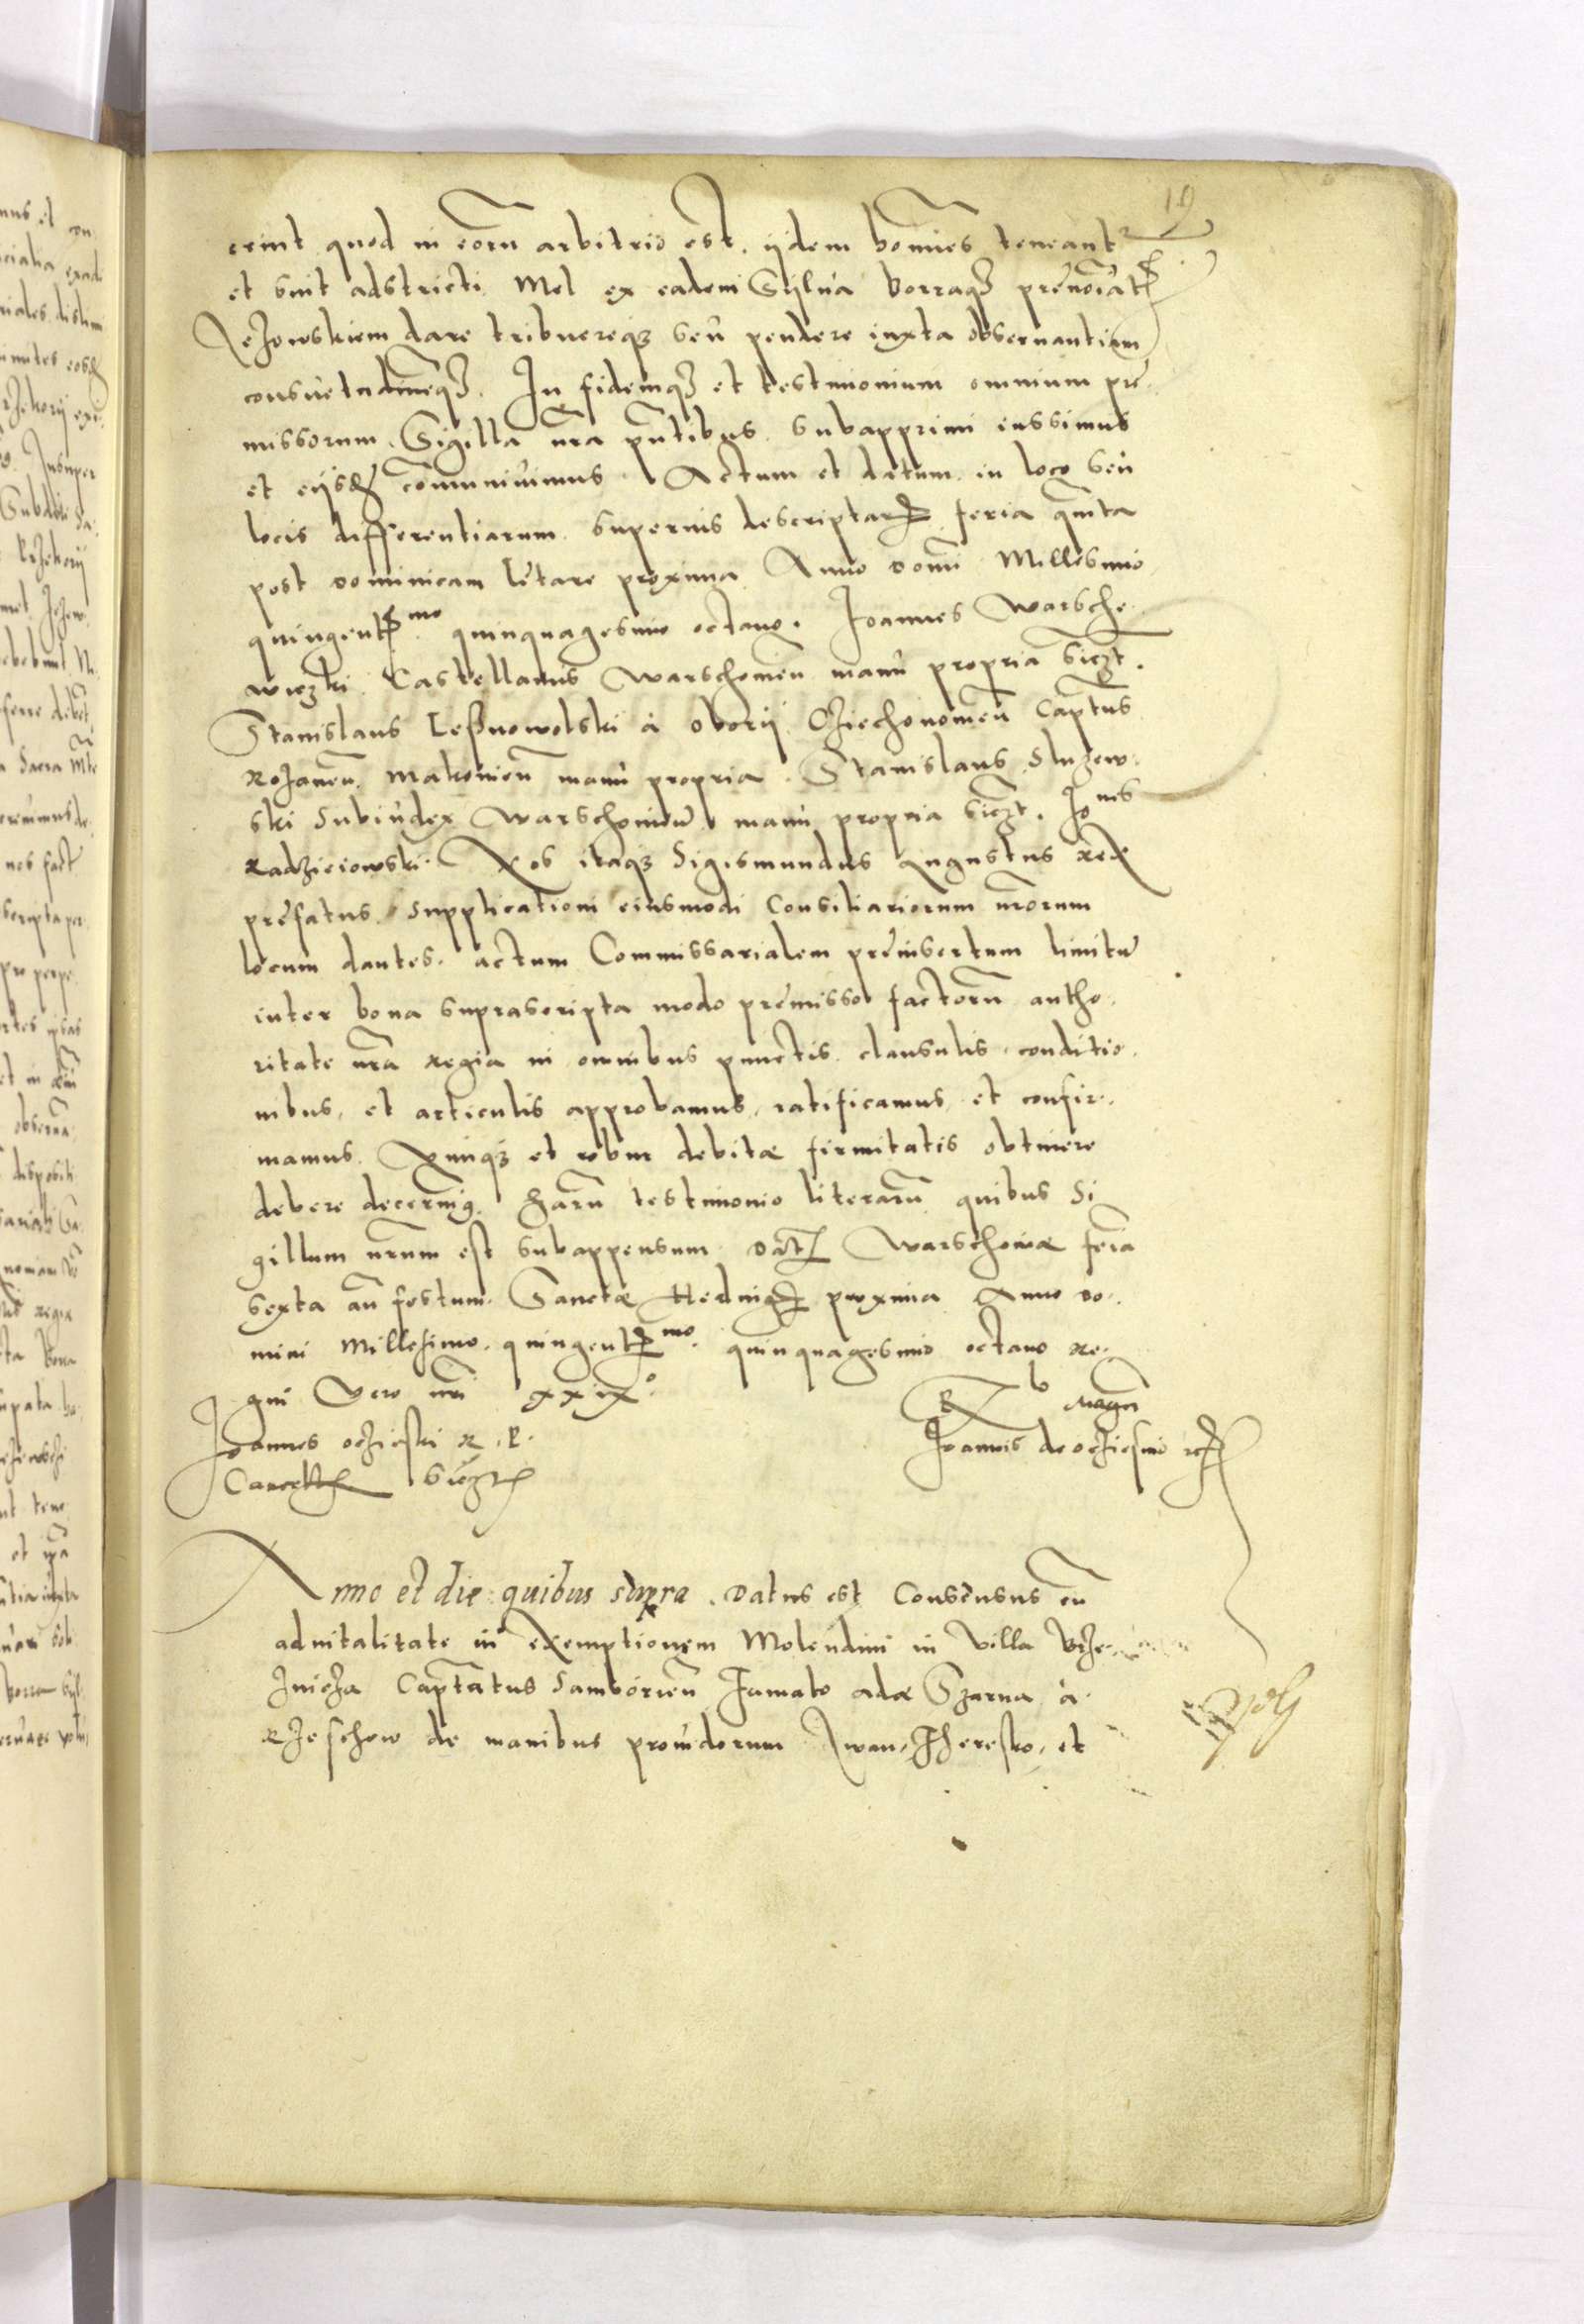 19
erint quod in eorũ arbitrio est. ijdem homĩes teneant
et sint adstricti Mel ex eadem Sylua Borraqꝫ prenoĩat
Jezowskiem dare tribuereqꝫ seu pendere iuxta obseruantiam
consuetudinẽqꝫ. In fidemqꝫ et testimonium omnium prę
missorum Sigilla nrã pñtibus subapprimi iussimus
et eijsdẽ cõmuniuimus. Actum et datum in loco seu
locis differentiarum superius descriptarꝫ feria quĩta
post dominicam lętare proxima Anno domĩ Millesimo
quingentmo quinquagesimo octauo. Joannes Warsche
wiczki Castellanus Warschouieñ manu propria sszt.
Stanislaus Leßnowolski à obory Cziechonouieñ Capt̃us
Rozaneñ Makouieñ manu propria. Stanislaus Sluzew
ski Subiudex Warschouieñ manu propria sszt. Jonēs
Radzieiowski. Nos itaqꝫ Sigismundus Augustus Rex
prefatus Supplicationi eiusmodi Consiliariorum nrõrum
locum dantes. actum Commissarialem pręinsertum limitũ
inter bona suprascripta modo pręmisso factorũ autho
ritate nrã Regia in omnibus punctis clausulis conditio
nibus, et articulis approbamus, ratificamus, et confir
mamus. Eumqꝫ et robur debitæ firmitatis obtinere
debere decernimꝰ. Harũ testimonio literarũ quibus Si
gillum nrũm est subappensum. Dat̃ Warschouiæ feria
sexta añ festum Sanctæ Heduigis proxima Anno Do
mini Millesimo quingentmo quinquagesimo octauo Re
gni vero nrĩ xxixo
Joannes oczieski R. P.
Cancell. sszt
Rlo Magci
Joannis de oczieschino
Anno et die quibus supra. Datus est Consensus cũ
aduitalitate in exemptionem Molendini in villa
Capt̃atus Samborieñ Szarna à
Rzeschow de manibus prouidorum Iwan, et